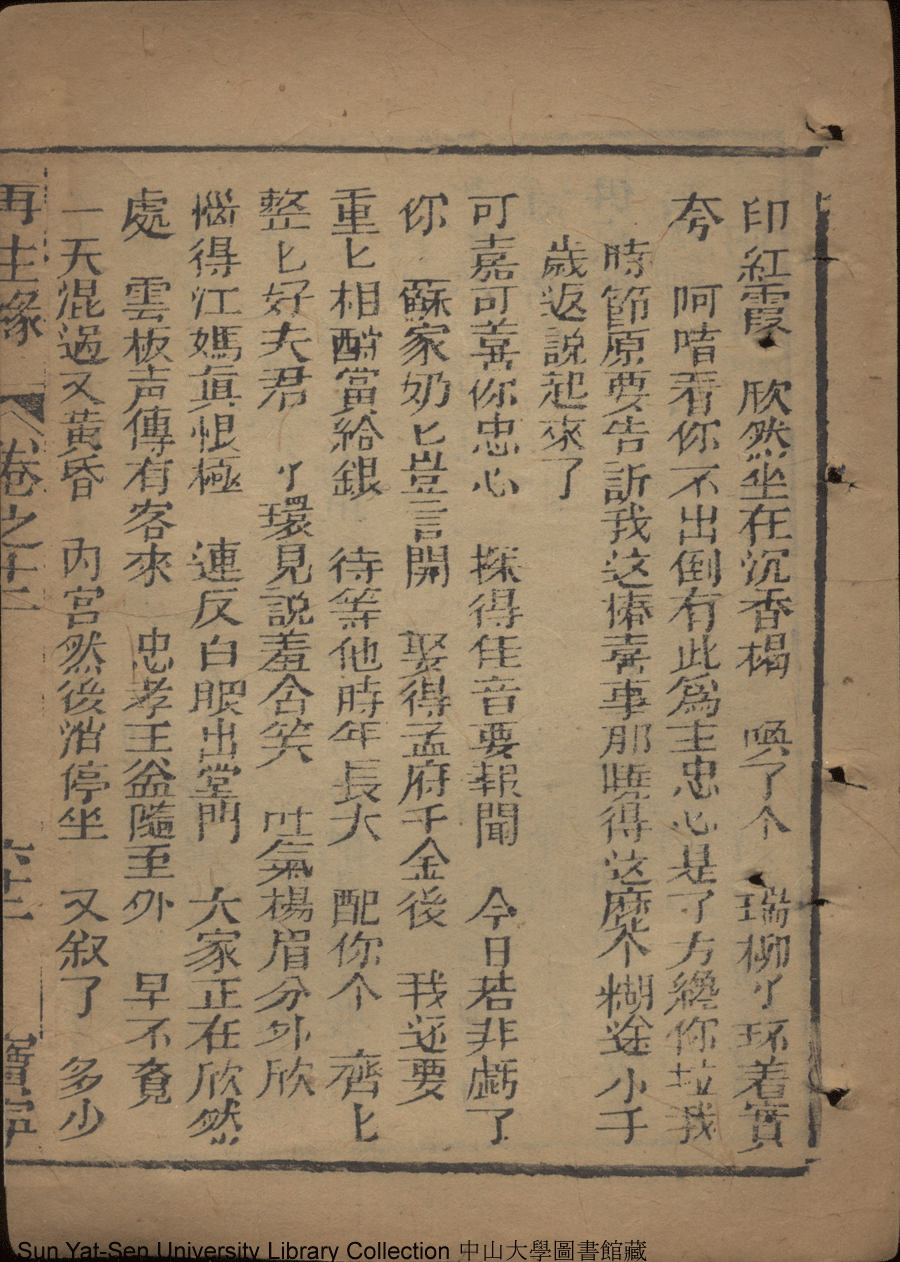 印紅霞 欣然坐在沉香榻 喚了个 瑞柳丫环着實
夸 阿唶看你不出倒有此為主忠心是了方纔你拉我
時節原要告訴我这樁喜事那曉得这麽个糊途小千
歲返說起來了
可嘉可羨你忠心 探得佳音要報聞 今日若非虧了
你 蘇家奶匕豈言開 娶得孟府千金後 我还要
重匕相酧當給銀 待等他時年長大 配你个 齊匕
整匕好夫君 丫環見說羞含笑 吐氣楊眉分外欣
惱得江媽眞恨極 連反白眼出堂門 大家正在欣然
處 雲板声傳有客來 忠孝王益隨至外 早不覔
一天混過又黃昏 內宮然後消停坐 又叙了 多少
再生緣 卷之十二 六十二 寶寧
Sun Yat-Sen University Library Collection 中山大學圖書館藏